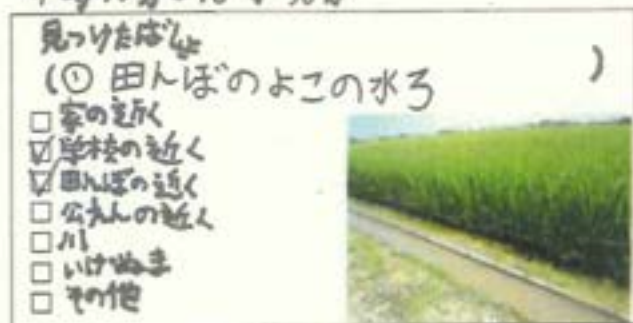 見つけたばしょ
(① 田んぼのよこの水ろ )
□ 家の近く
☑ 学校の近く
☑ 田んぼの近く
□ 公えんの近く
□ 川
□ いけぬま
□ その他